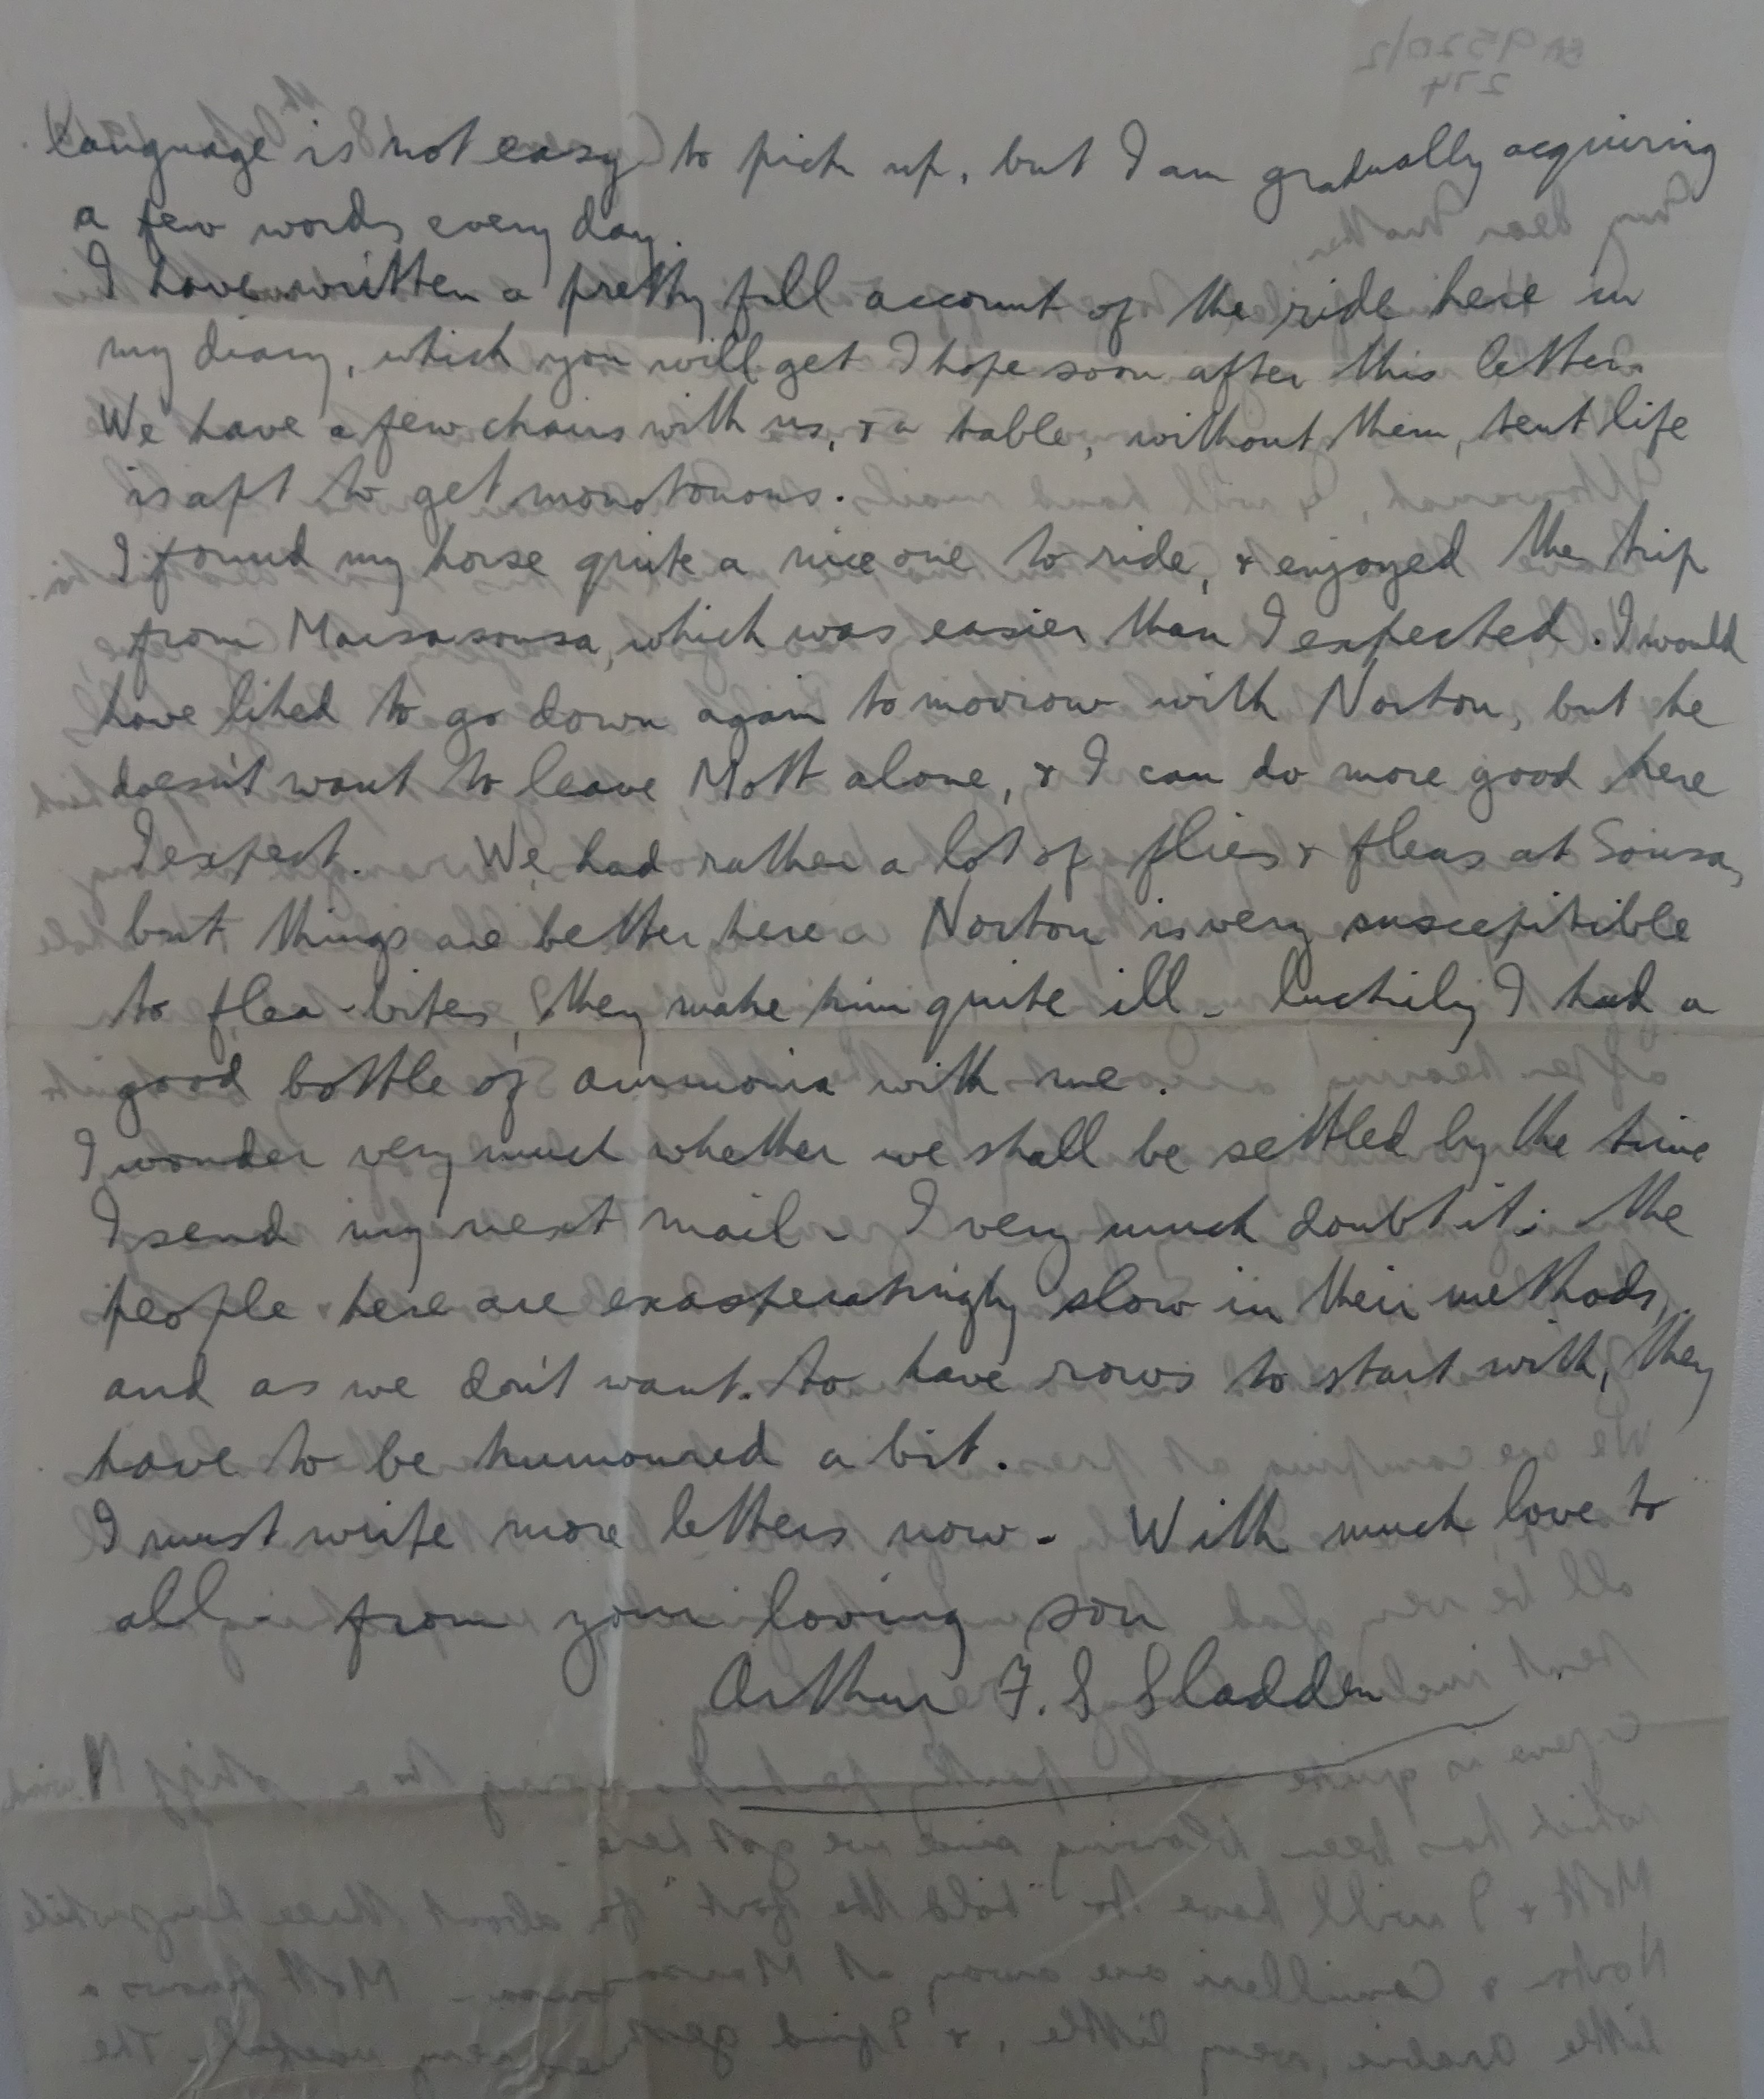 language is not easy to pick up, but I am gradually acquiring
a few words every day.
I have written a pretty full account of the ride here in
my diary, which you will get I hope soon after this letter.
We have a few chairs with us, & a table, without them, tent life
is apt to get monotonous.
I found my horse quite a nice one to ride, & enjoyed the trip
from Marsasousa, which was easier than I expected. I would
have liked to go down again tomorrow with Norton, but he
doesn't want to leave Mott alone, & I can do more good here
I expect. We had rather a lot of flies & fleas at Sousa,
but things are better here. Norton is very suscepitible
to flea-bites, they make him quite ill - luckily I had a
good bottle of ammonia with me.
I wonder very much whether we shall be settled by the time
I send my next mail - I very much doubt it; the
people here are exasperatingly slow in their methods,
and as we don't want to have rows to start with, they
have to be humoured a bit.
I must write more letters now - With much love to
all - from your loving son
Arthur F. S Sladden